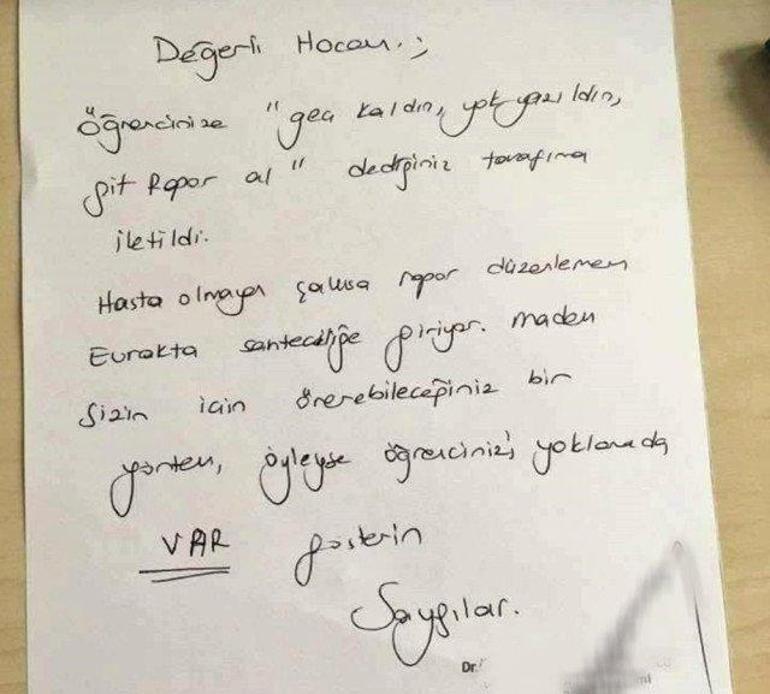 Değerli Hocam :)
Öğrencinize "geç kaldın, yok yazıldın,
git Rapor al" dediğiniz tarafıma
iletildi.
Hasta olmayan şahısa rapor düzenlemem
Evrakta sahteciliğe giriyor. Madem
Sizin için önerebileceğiniz bir
yöntem, öyleyse öğrencinizi, yoklamada
VAR gösterin
Saygılar.
Dr.